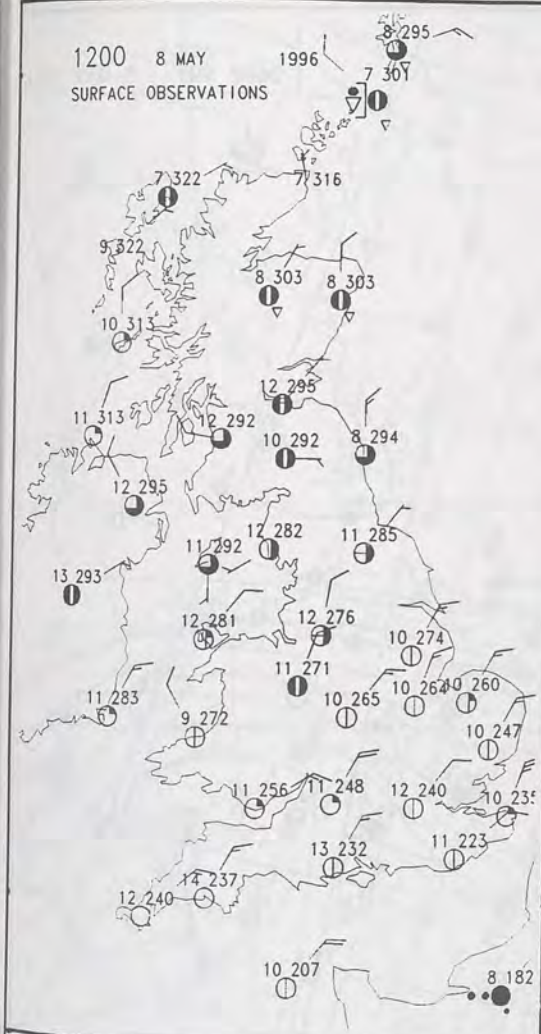 1200 8 MAY 1996
SURFACE OBSERVATIONS
8 295
7 301
7 322
7 316
9 322
8 303
8 303
10 313
12 295
11 313
12 292
10 292
8 294
12 295
12 282
11 292
11 285
13 293
12 281
12 276
10 274
11 271
11 283
10 265
10 264
10 260
9 272
10 247
11 256
11 248
12 240
10 235
13 232
11 223
14 237
12 240
10 207
8 182